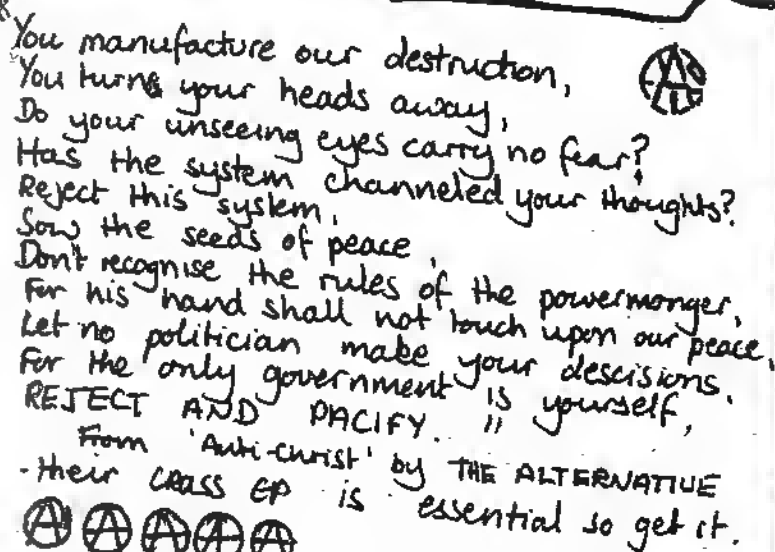 You manufacture our destruction,
You turns your heads away,
Do your unseeing eyes carry no fear?
Has the system channeled your thoughts?
Reject this system,
Sow the seeds of peace,
Don't recognise the rules of the powermonger,
For his hand shall not touch upon our peace,
Let no politician make your descisions.
For the only government is yourself,
REJECT AND PACIFY. "
From 'Anti-christ' by THE ALTERNATIVE
- their CRASS EP is essential so get it.